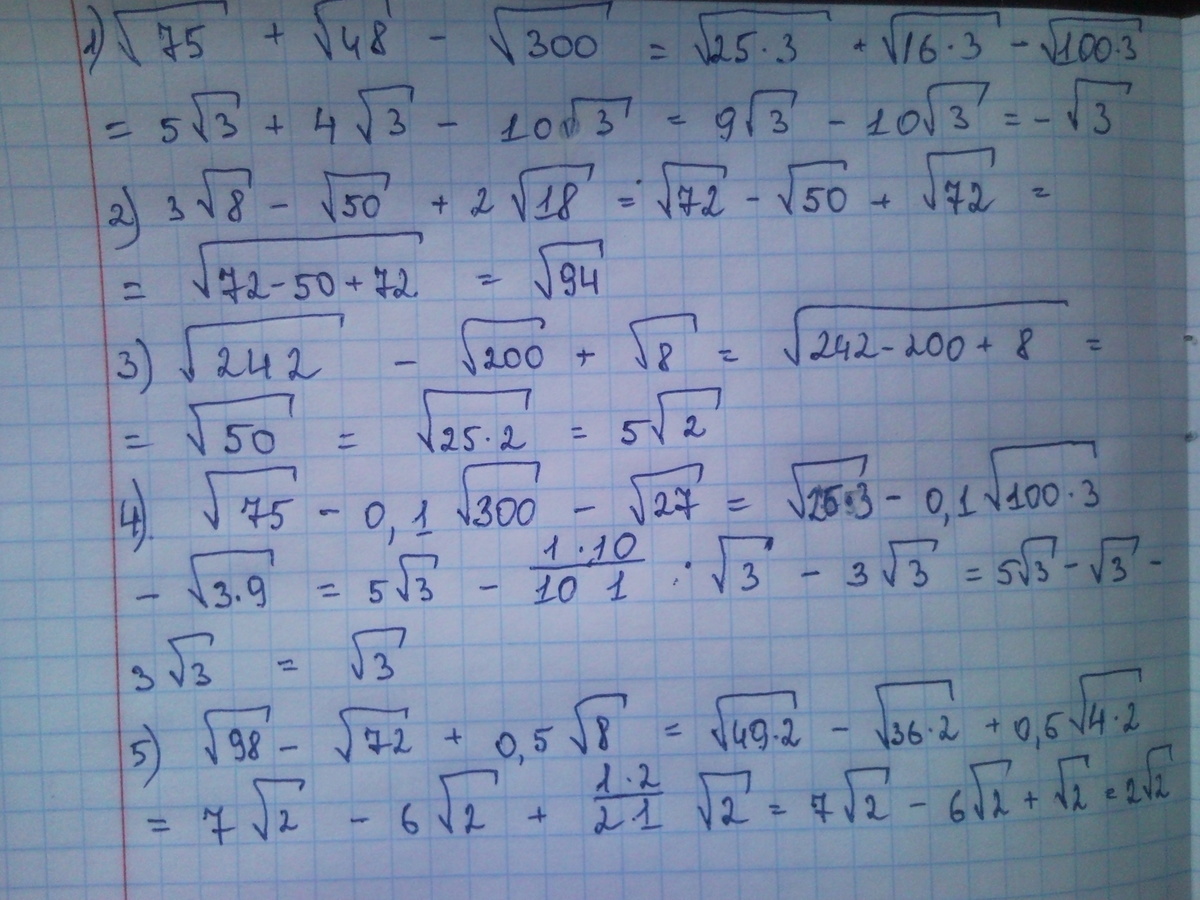 1) √75 + √48 - √300 = √25·3 + √16·3 - √100·3
= 5√3 + 4√3 - 10√3 = 9√3 - 10√3 = -√3
2) 3√8 - √50 + 2√18 = √72 - √50 + √72 =
= √72-50+72 = √94
3) √242 - √200 + √8 = √242-200+8 =
= √50 = √25·2 = 5√2
4) √75 - 0,1√300 - √27 = √25·3 - 0,1√100·3
- √3·9 = 5√3 - 1·10/10 1 · √3 - 3√3 = 5√3 - √3 -
3√3 = √3
5) √98 - √72 + 0,5√8 = √49·2 - √36·2 + 0,5√4·2
= 7√2 - 6√2 + 1·2/2·1 √2 = 7√2 - 6√2 + √2 = 2√2